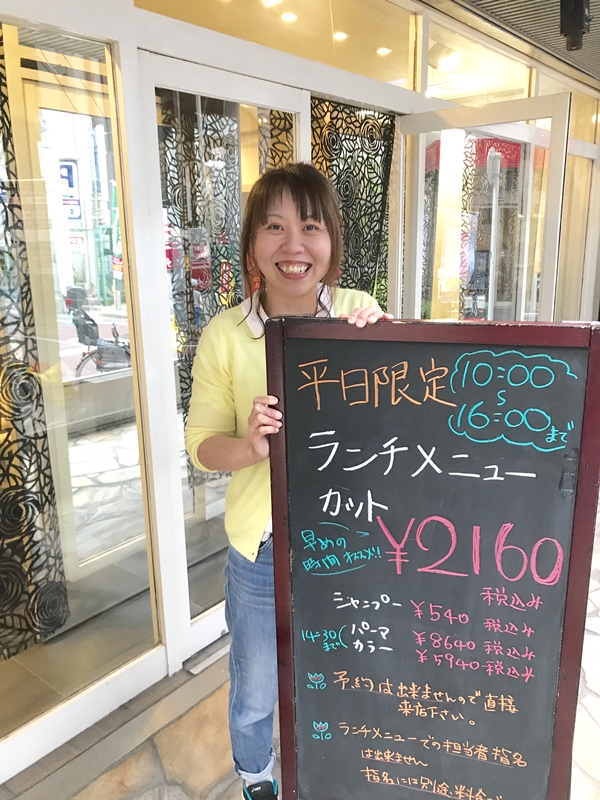 平日限定
10:00
〜
16:00
まで
ランチメニュー
カット
¥2160
税込み
早めの
時間オススメ!!
シャンプー ¥540 税込み
14:30
まで
パーマ ¥8640 税込み
カラー ¥5940 税込み
予約は出来ませんので直接
来店下さい。
ランチメニューでの担当者指名
は出来ません
指名には別途料金